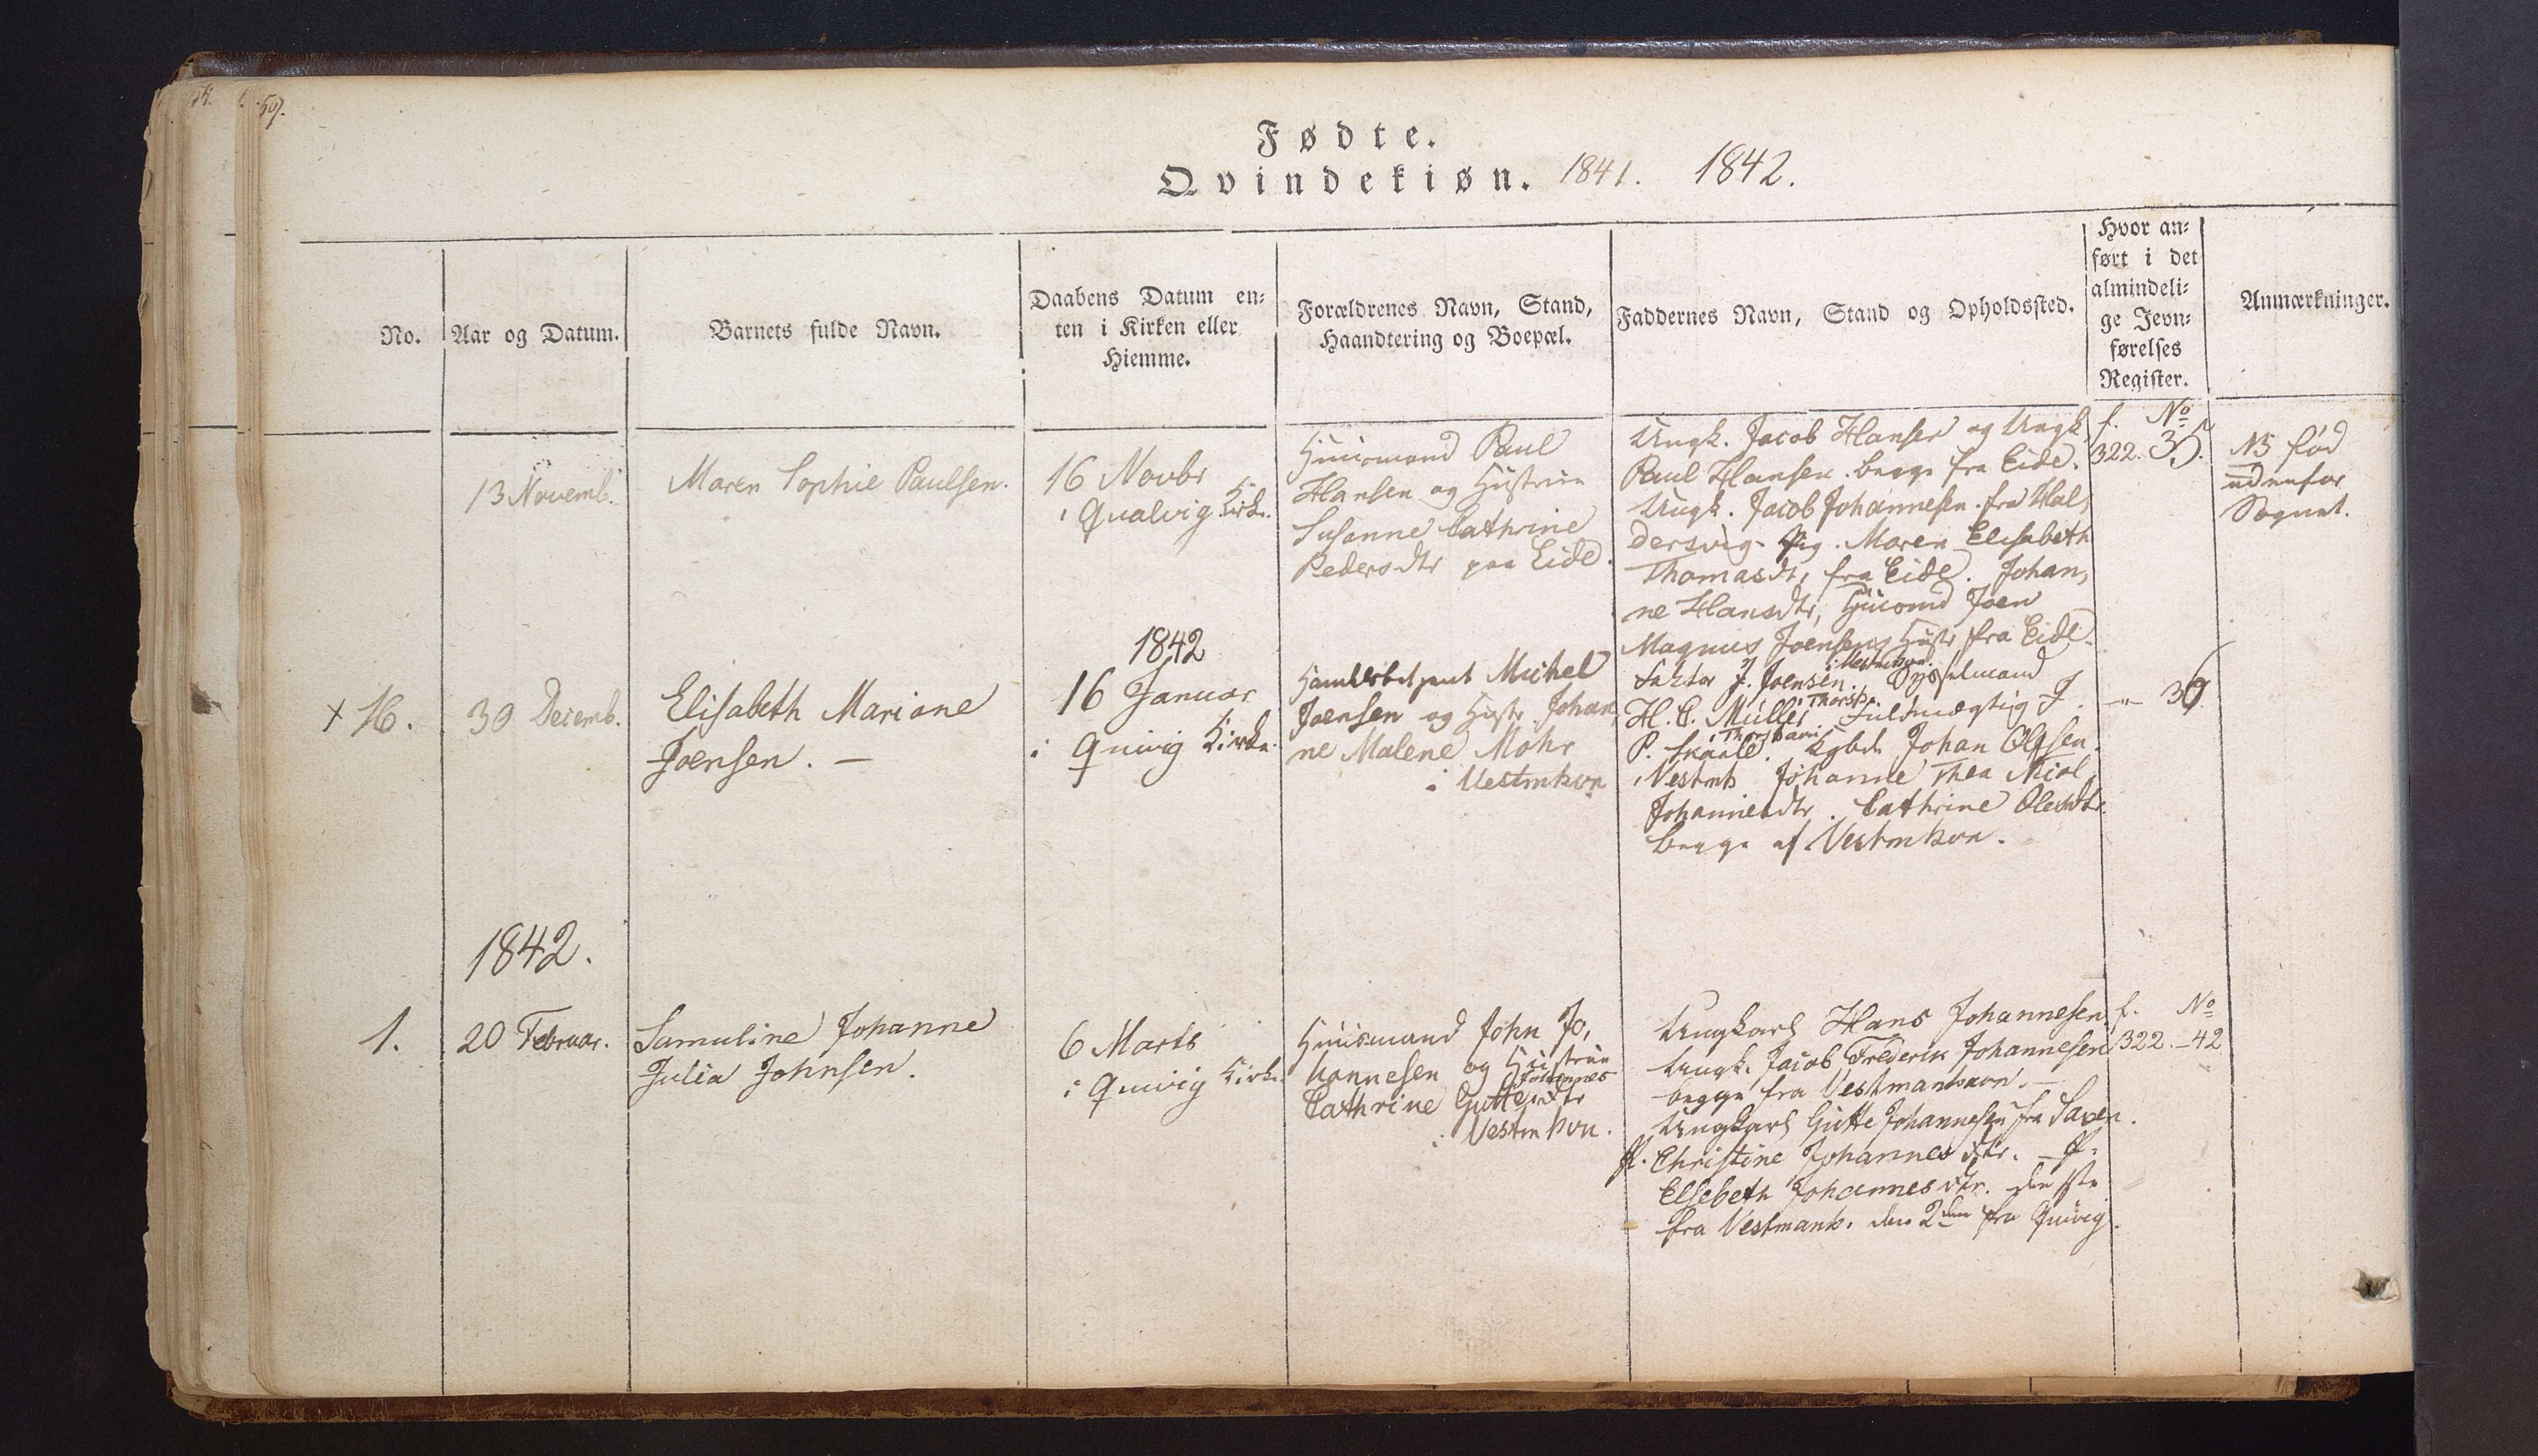 59.
Fødte.
Qvindekiøn. 1841. 1842.
No.
Aar og Datum.
Barnets fulde Navn.
Daabens Datum en-
ten i Kirken eller
Hiemme.
Forældrenes Navn, Stand,
Haandtering og Boepæl.
Faddernes Navn, Stand og Opholdssted.
Hvor an-
ført i det
almindeli-
ge Jevn-
førelses
Register.
Anmærkninger.
13 Novemb.
Maren Sophie Paulsen.
16 Novbr
i Qvalvig Kirke.
Huusmand Paul
Hansen og Hustrue
Susanne Cathrine
Pedersdtr paa Eide.
Ungk. Jacob Hansen og Ungk.
Paul Hansen. begge fra Eide.
Ungk. Jacob Johannesen fra Hal,
dersvig. Pig. Maren Elisabeth
Thomasdt, fra Eide. Johan,
ne Hansdtr, Huusmd Joen
Magnus Joensens Hustr fra Eide.
f. No
322. 35.
NB fød
udenfor
Sognet.
+ 16.
30 Decemb.
Elisabeth Mariane
Joensen. —
1842
16 Januar
i Qvivig Kirke.
Handelsbetjent Michel
Joensen og Hustr. Johan,
ne Malene Mohr
i Vestmhvn
i Vestmhavn.
Faktor J. Joensen. Sysselmand
i Thorsh.
H. C. Müller Fuldmægtig J.
Thorshavn
P. Skaale. Kgbd. Johan Olesen
i Vestmh Johanne Thea Niol,
Johannesdtr. Cathrine Olesdtr.
begge af Vestmhvn.
–"– 36
1842.
1.
20 Februar.
Samuline Johanne
Julia Johnsen.
6 Marts
i Qvivig Kirke.
Huusmand John Jo,
hannesen og Hustrue
Johannes
Cathrine Guttesdtr
i Vestmhvn.
Ungkarl Hans Johannesen
Ungk. Jacob Frederik Johannesen
begge fra Vestmanhavn. —
Ungkarl Gutte Johannesen fra Saxen.
P. Christine Johannesdtr. — P.
Elsebeth Johannesdtr. den 1ste
fra Vestmanh. den 2den fra Qvivig.
f. No
322. – 42